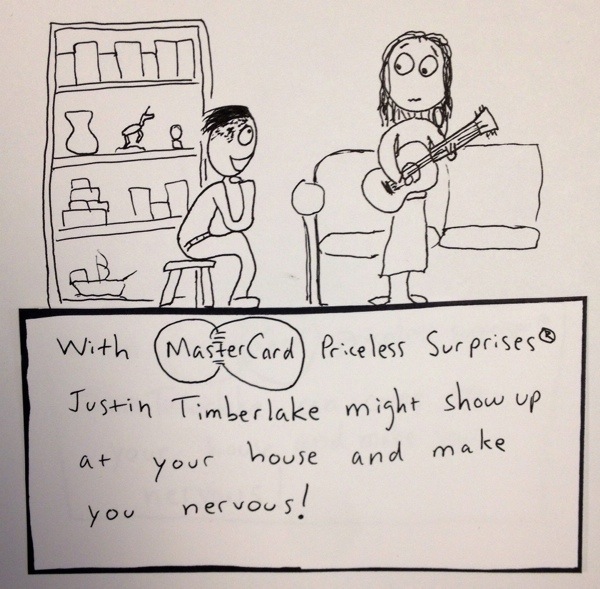 With MasterCard Priceless Surprises®
Justin Timberlake might show up
at your house and make
you nervous!